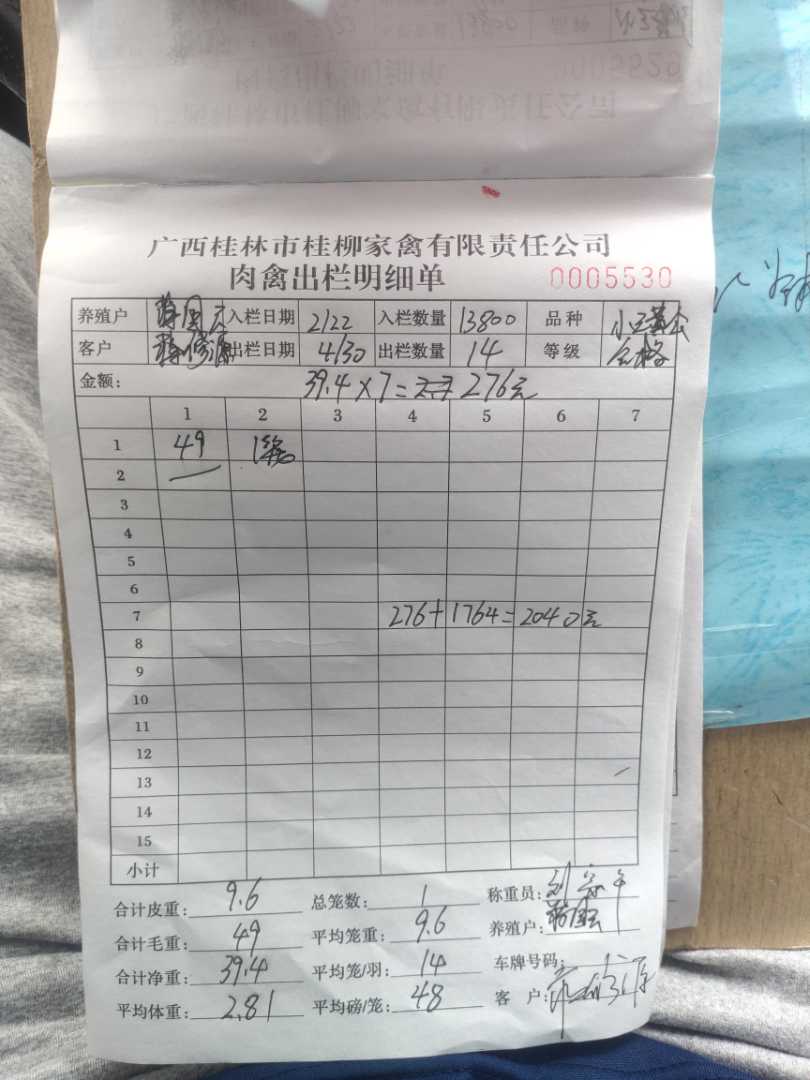 广西桂林市桂柳家禽有限责任公司
肉禽出栏明细单 0005530
养殖户 入栏日期 2/22 入栏数量 13800 品种
客户 出栏日期 4/30 出栏数量 14 等级 合格
金额: 39.4×7= 276元
1 2 3 4 5 6 7
1 49 1笼
2
3
4
5
6
7 276+1764=2040元
8
9
10
11
12
13
14
15
小计
合计皮重: 9.6 总笼数: 1 称重员:
合计毛重: 49 平均笼重: 9.6 养殖户:
合计净重: 39.4 平均笼/羽: 14 车牌号码:
平均体重: 2.81 平均磅/笼: 48 客 户: